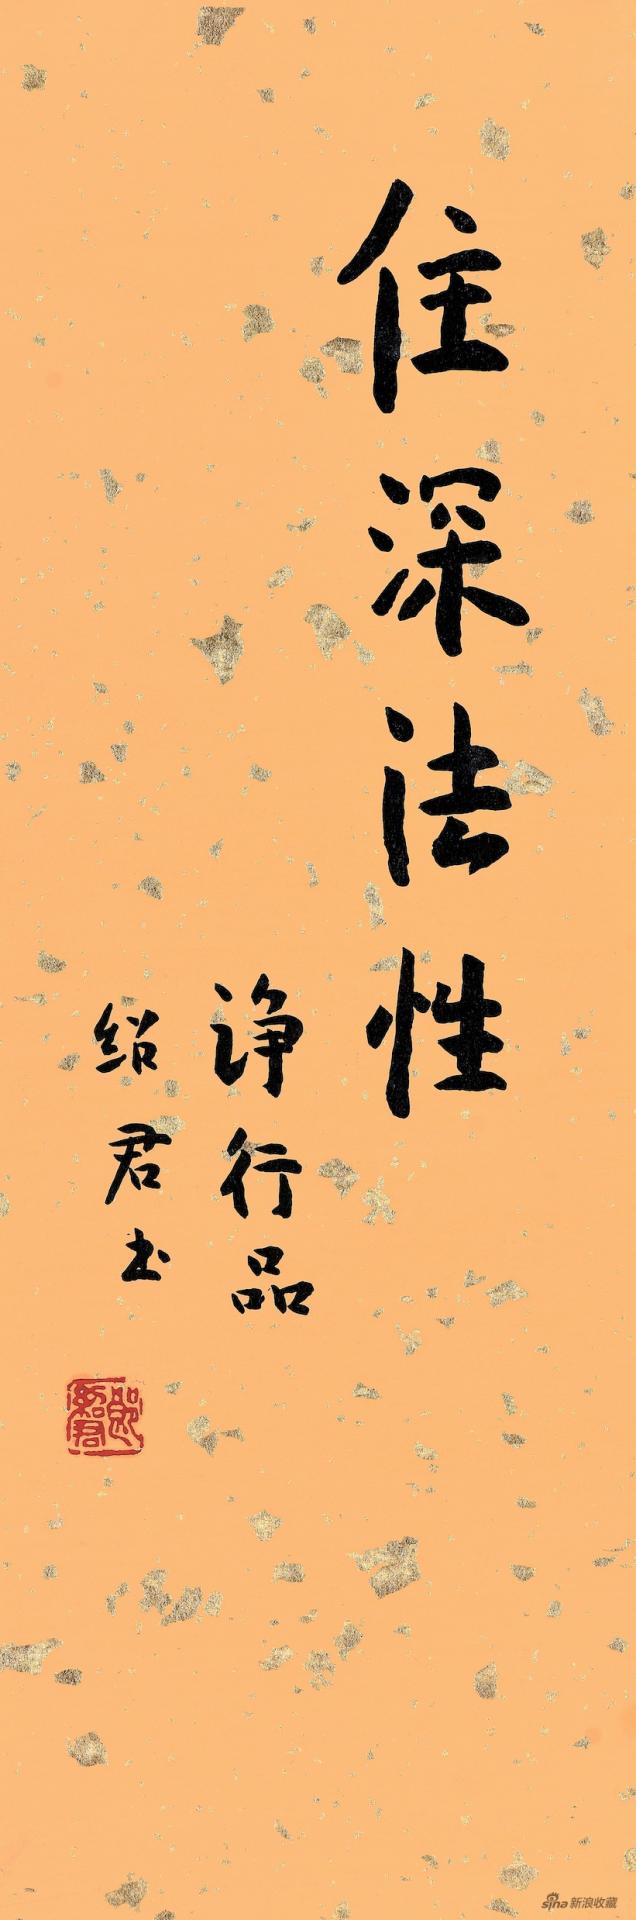 住深法性
净行品
绍君书
sina新浪收藏